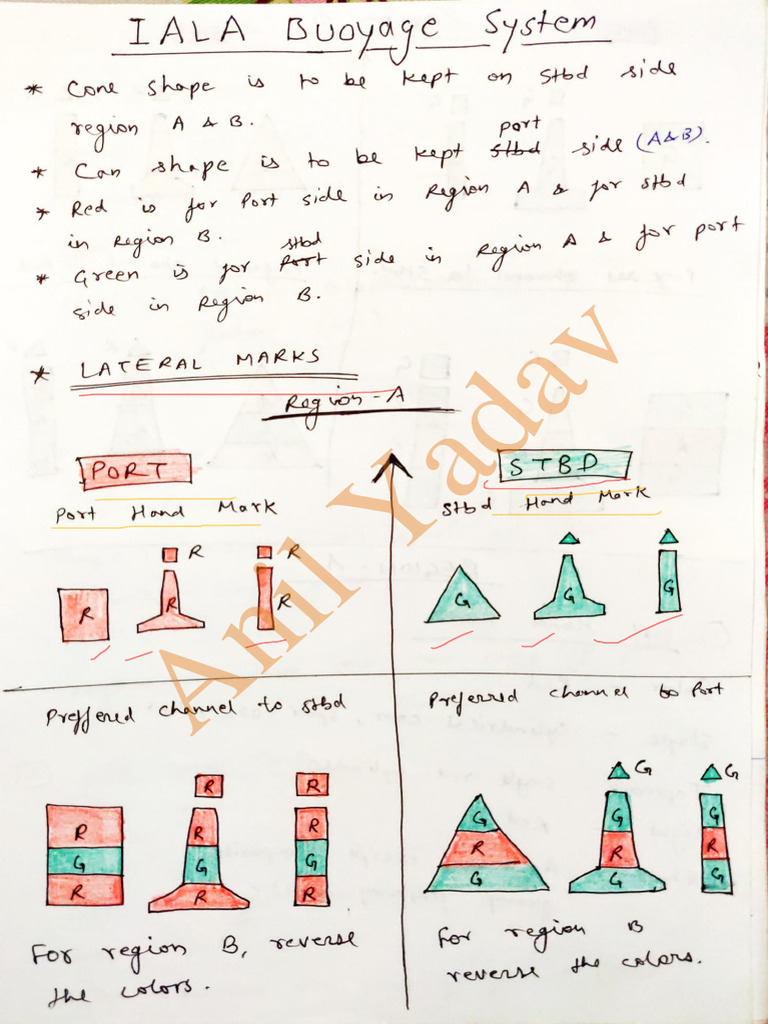 IALA Buoyage System
* Cone shape is to be kept on Stbd side
region A & B.
port
* Can shape is to be kept stbd side (A&B).
* Red is for Port side in Region A & for stbd
in Region B.
stbd
* Green is for Port side in Region A & for port
side in Region B.
* LATERAL MARKS
Region-A
PORT
STBD
Port Hand Mark
Stbd Hand Mark
R R
R R R
G G G
Preffered channel to stbd
Preferred channel to Port
R R
R R R
G G G
R R R
G G
G G G
R R R
G G G
For region B, reverse
the colors.
For region B
reverse the colors.
Anil Yadav